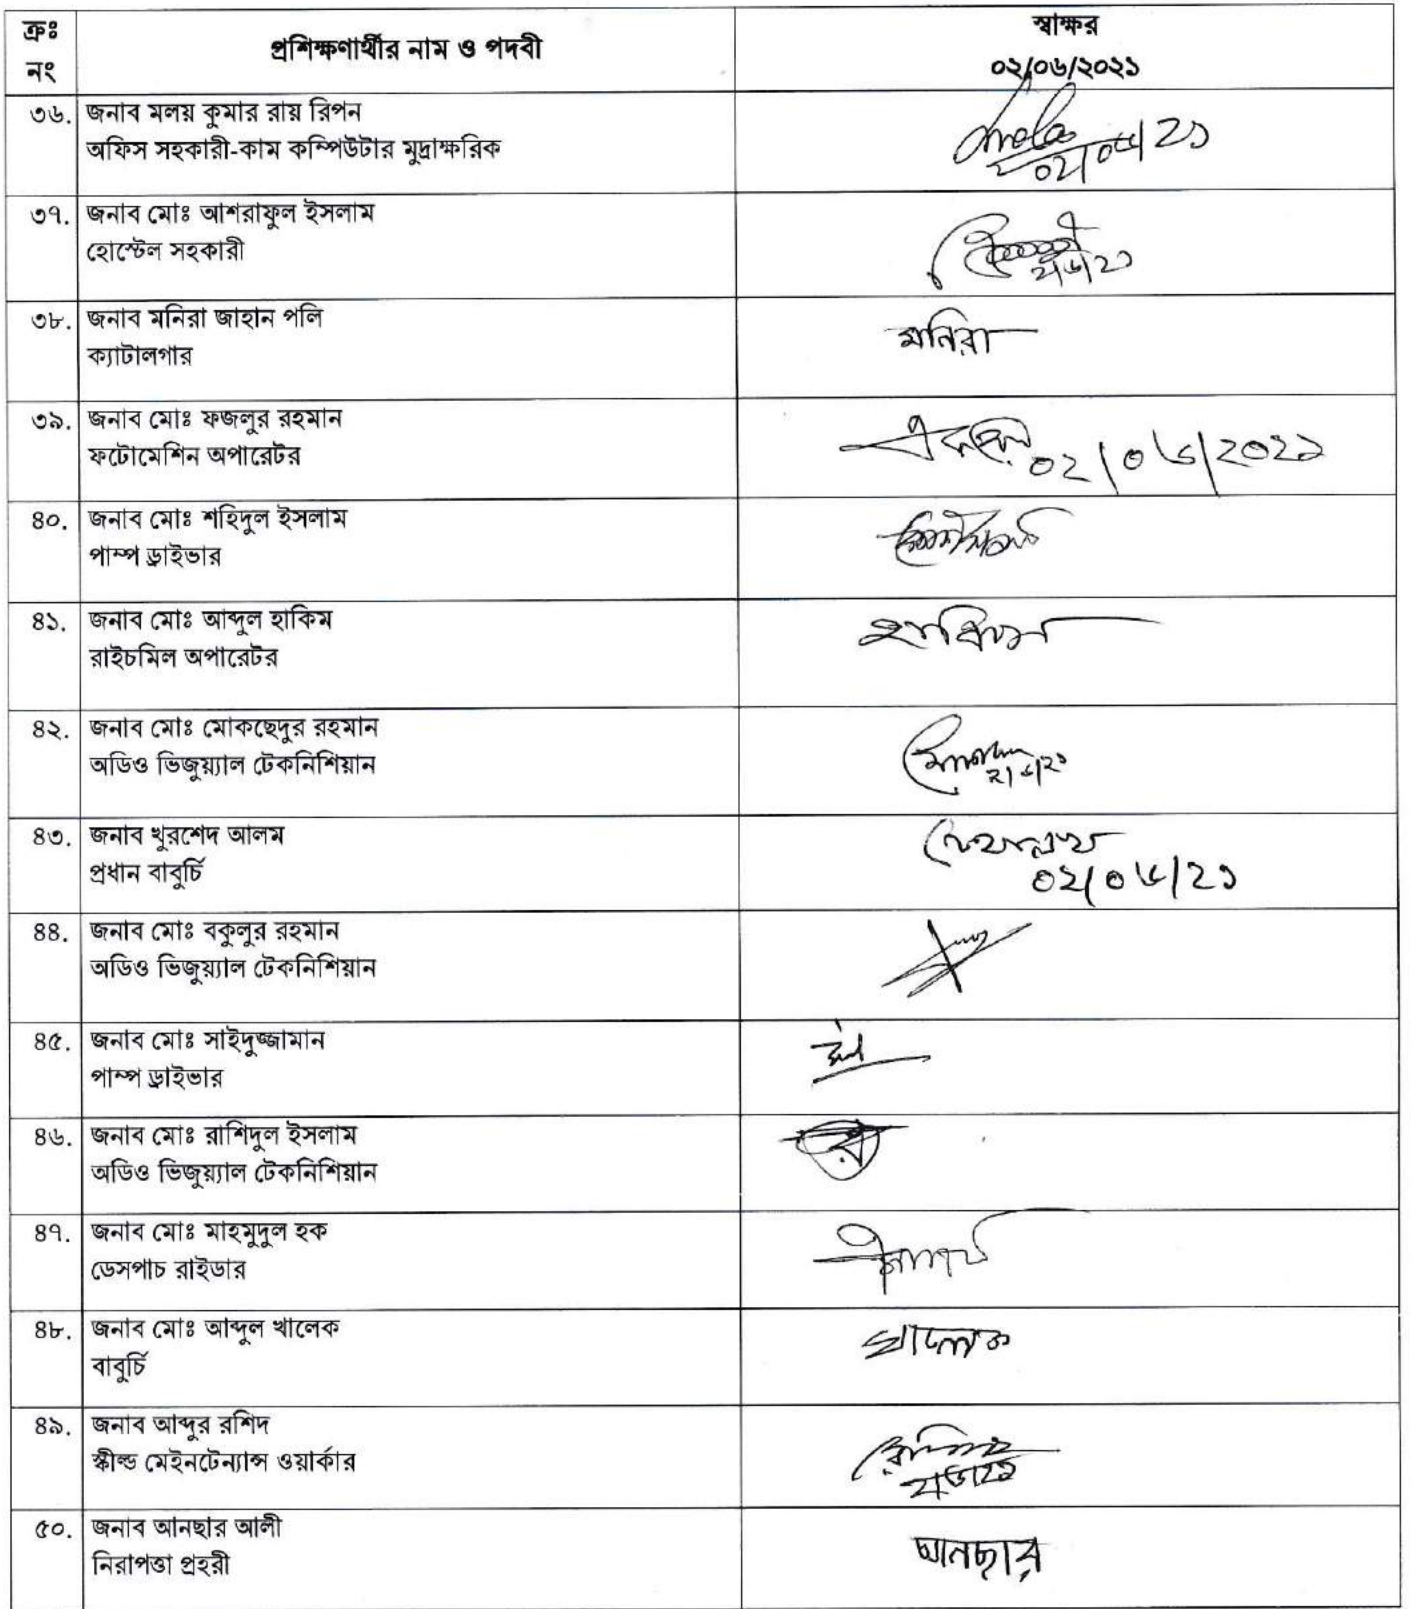 ক্রঃ নং প্রশিক্ষণার্থীর নাম ও পদবী স্বাক্ষর ০২/০৬/২০২১
৩৬. জনাব মলয় কুমার রায় রিপন
অফিস সহকারী-কাম কম্পিউটার মুদ্রাক্ষরিক
০২/০৬/২১
৩৭. জনাব মোঃ আশরাফুল ইসলাম
হোস্টেল সহকারী
২/৬/২১
৩৮. জনাব মনিরা জাহান পলি
ক্যাটালগার
মনিরা
৩৯. জনাব মোঃ ফজলুর রহমান
ফটোমেশিন অপারেটর
০২/০৬/২০২১
৪০. জনাব মোঃ শহিদুল ইসলাম
পাম্প ড্রাইভার
৪১. জনাব মোঃ আব্দুল হাকিম
রাইচমিল অপারেটর
হাকিম
৪২. জনাব মোঃ মোকছেদুর রহমান
অডিও ভিজুয়্যাল টেকনিশিয়ান
২/৬/২১
৪৩. জনাব খুরশেদ আলম
প্রধান বাবুর্চি
০২/০৬/২১
৪৪. জনাব মোঃ বকুলুর রহমান
অডিও ভিজুয়্যাল টেকনিশিয়ান
৪৫. জনাব মোঃ সাইদুজ্জামান
পাম্প ড্রাইভার
৪৬. জনাব মোঃ রাশিদুল ইসলাম
অডিও ভিজুয়্যাল টেকনিশিয়ান
৪৭. জনাব মোঃ মাহমুদুল হক
ডেসপাচ রাইডার
৪৮. জনাব মোঃ আব্দুল খালেক
বাবুর্চি
খালেক
৪৯. জনাব আব্দুর রশিদ
স্কীল্ড মেইনটেন্যান্স ওয়ার্কার
২/৬/২১
৫০. জনাব আনছার আলী
নিরাপত্তা প্রহরী
আনছার